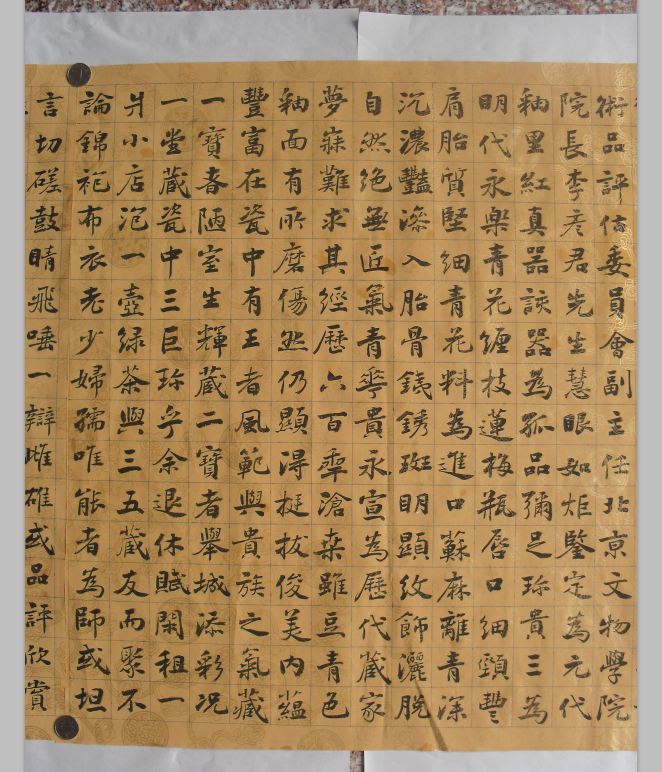 術品評估委員會副主任北京文物學院
院長李彥君先生慧眼如炬鑒定為元代
釉里紅真器該器為孤品彌足珍貴三為
明代永樂青花纏枝蓮梅瓶唇口細頸豐
肩胎質堅細青花料為進口蘇麻離青深
沉濃豔深入胎骨銕銹斑明顯紋飾灑脫
自然絕無匠氣青華貴永宣為歷代藏家
夢寐難求其經歷六百年滄桑雖豆青色
釉面有所磨傷然仍顯得挺拔俊美內蘊
豐富在瓷中有王者風範與貴族之氣藏
一寶者陋室生輝藏二寶者舉城添彩況
一堂藏瓷中三巨珍乎余退休賦閑租一
爿小店泡一壺綠茶與三五藏友而聚不
論錦袍布衣老少婦孺唯能者為師或坦
言切磋鼓睛飛唾一辯雌雄或品評欣賞